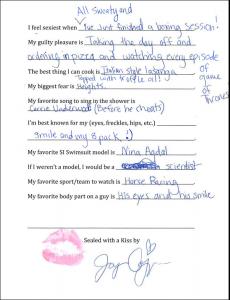 All Sweaty and
I feel sexiest when I've just finished a boxing session!
My guilty pleasure is Taking the day off and
ordering in pizza and watching every episode
of game of Thrones
The best thing I can cook is Italian style lasagna
Topped with truffle oil!
My biggest fear is Heights.
My favorite song to sing in the shower is
Carrie Underwood (Before he cheats)
I'm best known for my (eyes, freckles, hips, etc.)
smile and my 8 pack :)
My favorite SI Swimsuit model is Nina Agdal
If I weren't a model, I would be a scientist
My favorite sport/team to watch is Horse Racing
My favorite body part on a guy is His eyes and his smile
Sealed with a Kiss by